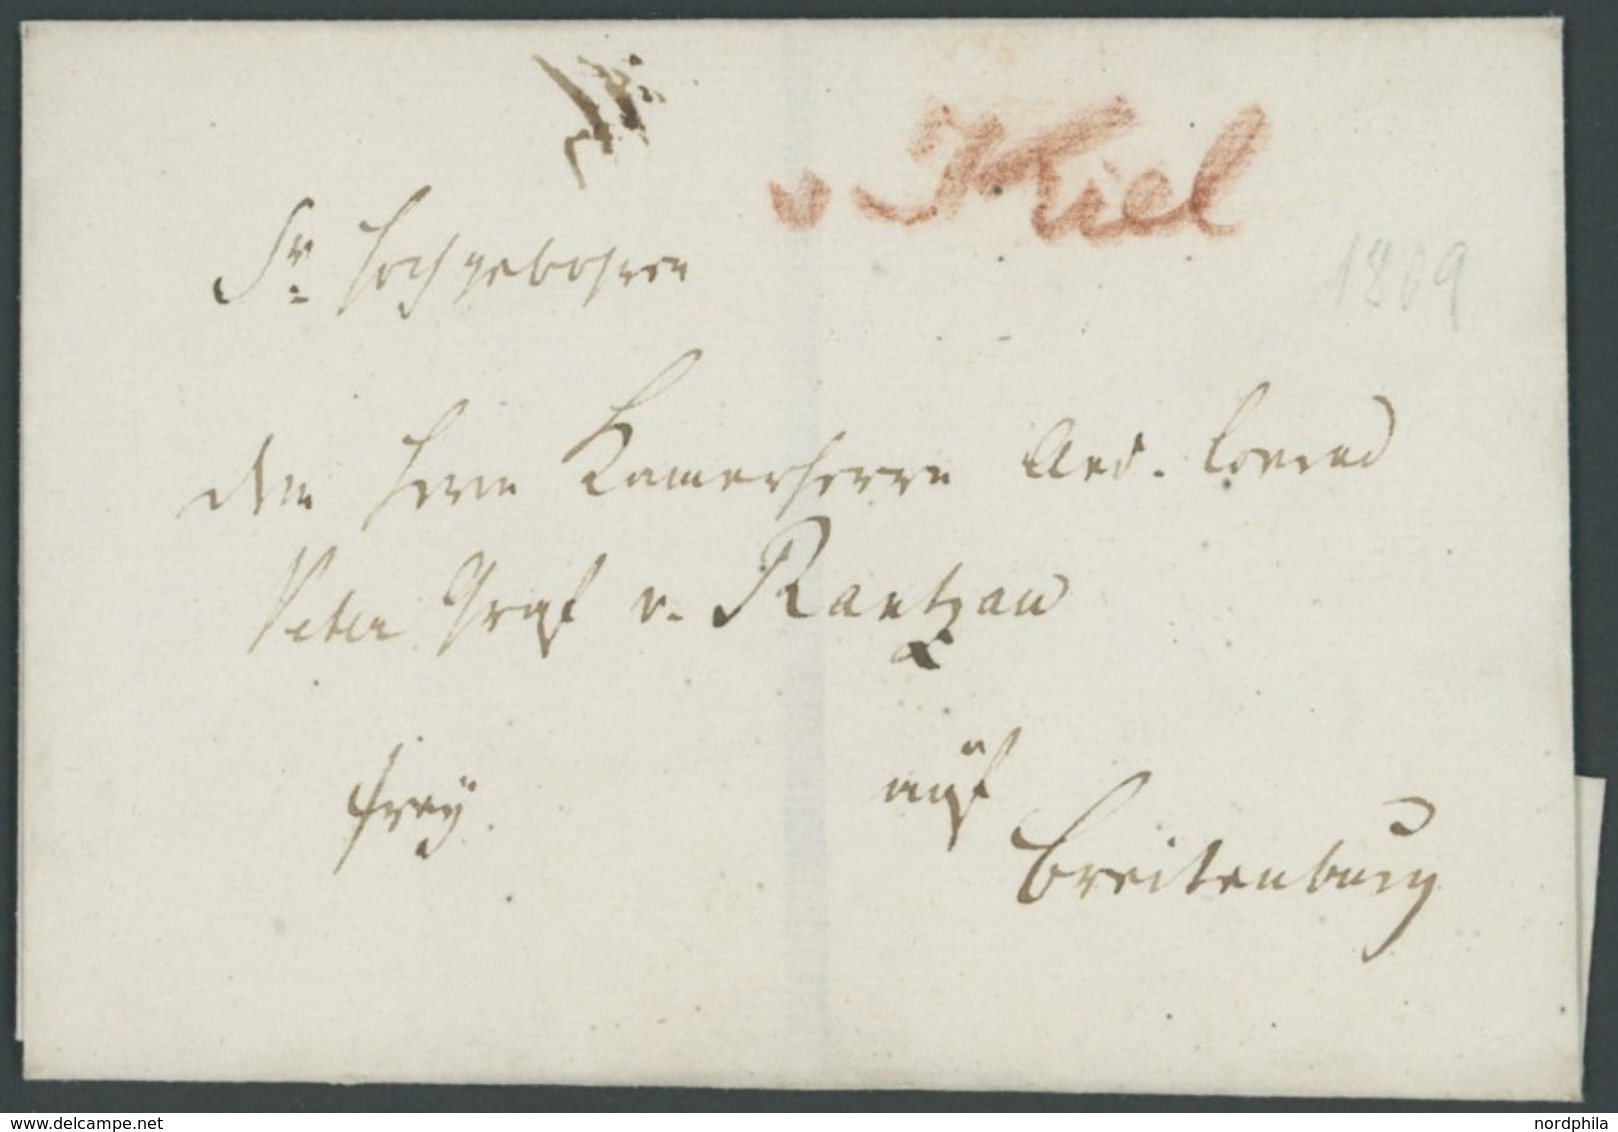 v Kiel
Sr. Hochgebohren
1809
dem Herrn Kamerherrn And. Conrad
Peter Graf v. Rantzau
frey.
auf
Breitenburg
delcampe.net
nordphila